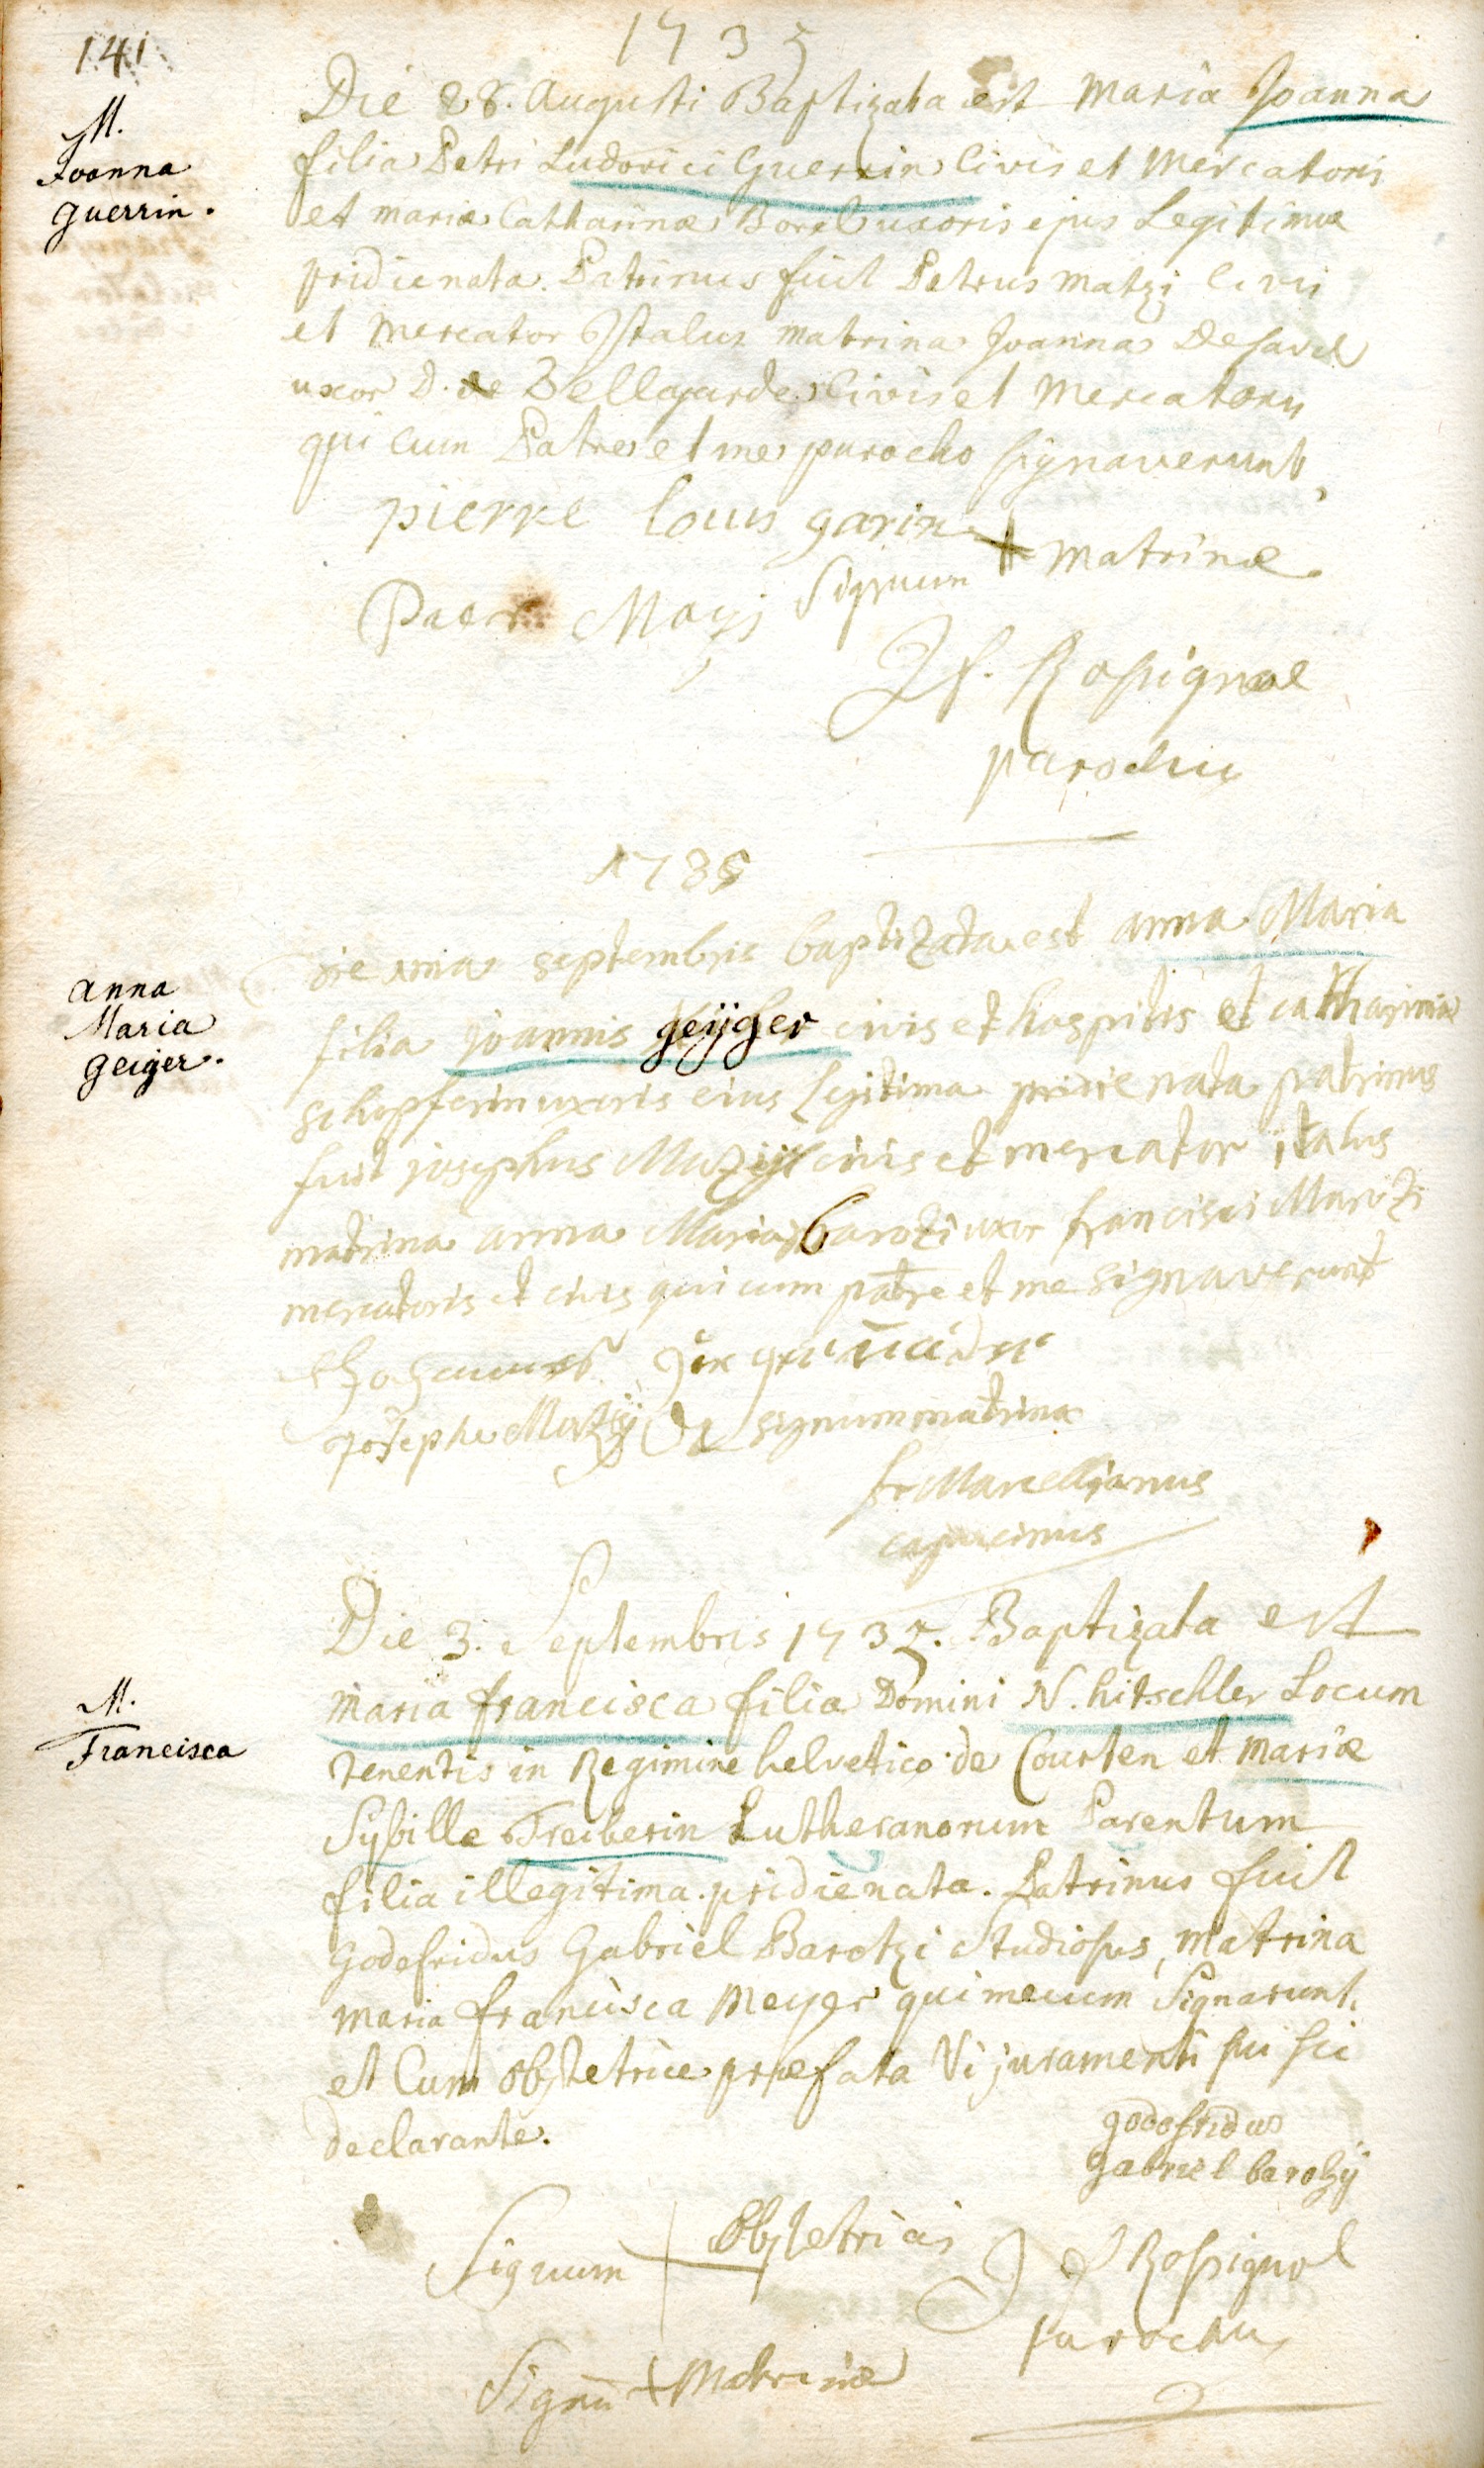 141
1735
M.
Joanna
guerrin.
Die 28. Augusti Baptizata est Maria Joanna
filia Petri Ludovici Guerrin Civis et Mercatoris
et mariæ Catharinæ Borel uxoris ejus Legitimæ
pridie nata. Patrinus fuit Petrus Matzi Civis
et Mercator Italus matrina Joanna
uxor D. de Bellegarde Civis et Mercatoris
qui cum Patre et me parocho signaverunt,
pierre louis garin
Signum + Matrinæ
Rossignol
parochus
1735
anna
Maria
geiger.
die una septembris baptizata est anna Maria
filia joannis geÿger civis et hospitis et catharinæ
schopferin uxoris eius legitima pridie nata patrinus
fuit josephus Mazÿ civis et mercator italus
matrina anna Maria barozi uxor francisci Marozi
mercatoris et civis qui cum patre et me signaverunt
josephe Matzÿ signum matrinæ
fr Marcellianus
capucinus
M.
Francisca
Die 3. Septembris 1735. Baptizata est
Maria francisca filia Domini N. hitschler Locum
tenentis in Regimine helvetico de Courten et Mariæ
Sybille Treiberin Lutheranorum Parentum
filia illegitima pridie nata. Patrinus fuit
Godefridus Gabriel Barotzi Studiosus, Matrina
Maria francisca Meyer qui mecum Signarunt.
et Cum obstetrice præfata Vi juramenti sui sic
declarante.
godofridus
gabriel barotzÿ
Signum + Obstetricis
J Rossignol
parochus
Signu + Matrinæ